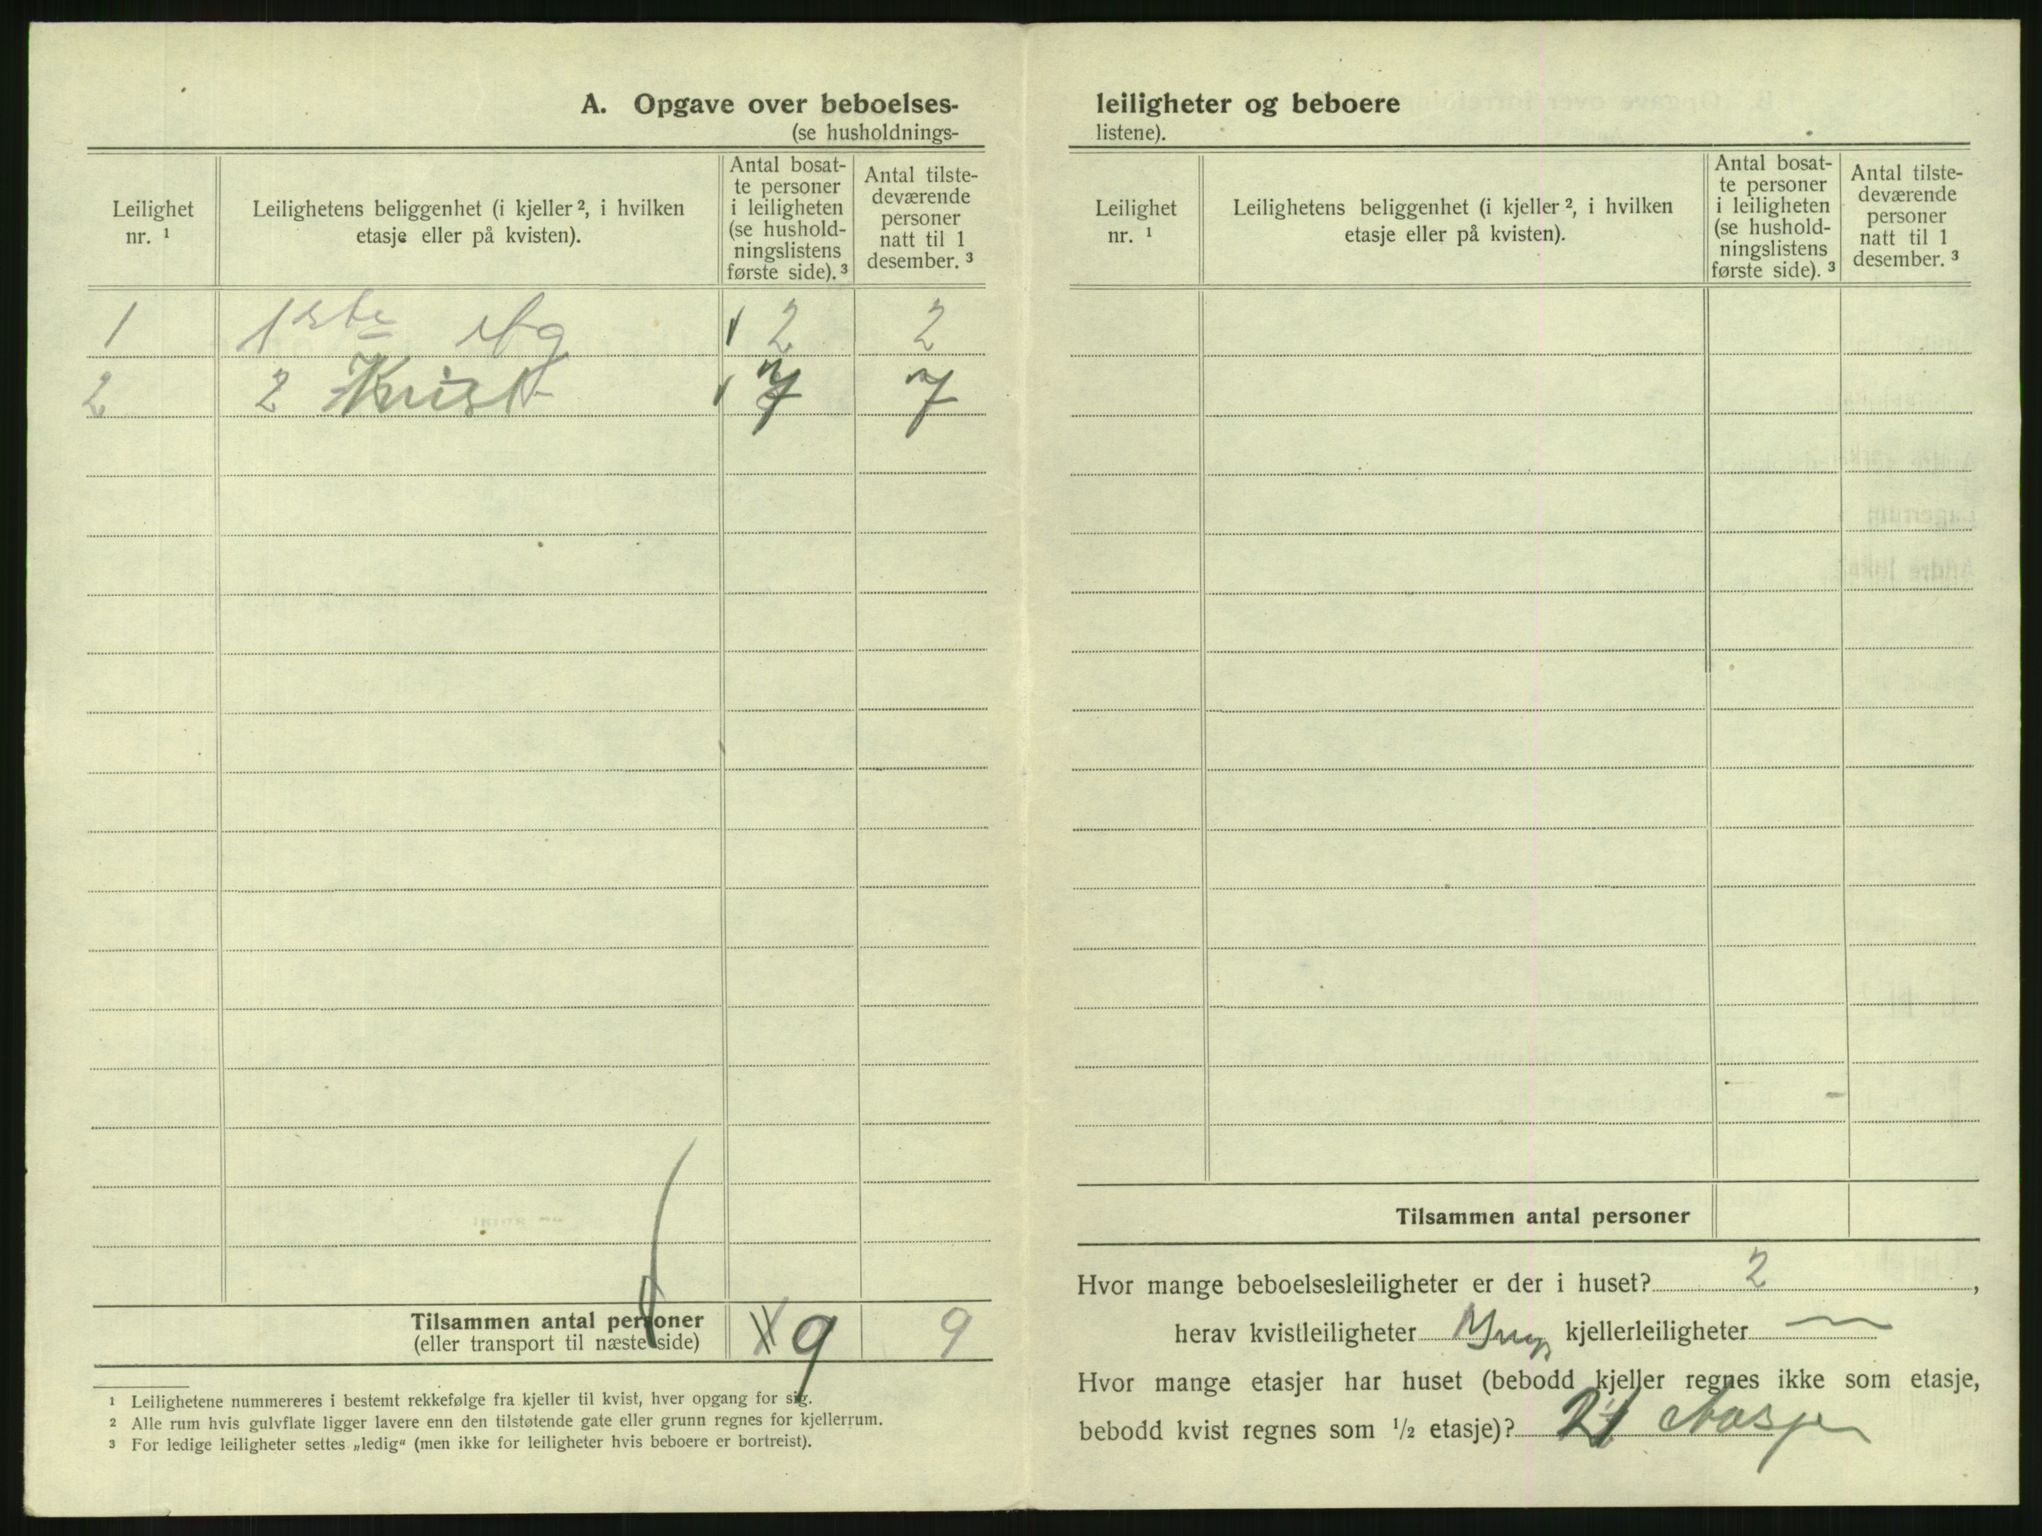 A. Opgave over beboelses-
(se husholdnings-
Leilighet
nr. ¹
Leilighetens beliggenhet (i kjeller ², i hvilken
etasje eller på kvisten).
Antal bosat-
te personer
i leiligheten
(se hushold-
ningslistens
første side). ³
Antal tilste-
deværende
personer
natt til 1
desember. ³
1 1ste 2 2
2 2 Kvist 7 7
Tilsammen antal personer
(eller transport til næste side)
9 9
¹ Leilighetene nummereres i bestemt rekkefølge fra kjeller til kvist, hver opgang for sig.
² Alle rum hvis gulvflate ligger lavere enn den tilstøtende gate eller grunn regnes for kjellerrum.
³ For ledige leiligheter settes „ledig“ (men ikke for leiligheter hvis beboere er bortreist).
leiligheter og beboere
listene).
Leilighet
nr. ¹
Leilighetens beliggenhet (i kjeller ², i hvilken
etasje eller på kvisten).
Antal bosat-
te personer
i leiligheten
(se hushold-
ningslistens
første side). ³
Antal tilste-
deværende
personer
natt til 1
desember. ³
Tilsammen antal personer
Hvor mange beboelsesleiligheter er der i huset? 2,
herav kvistleiligheter kjellerleiligheter —
Hvor mange etasjer har huset (bebodd kjeller regnes ikke som etasje,
bebodd kvist regnes som ½ etasje)?